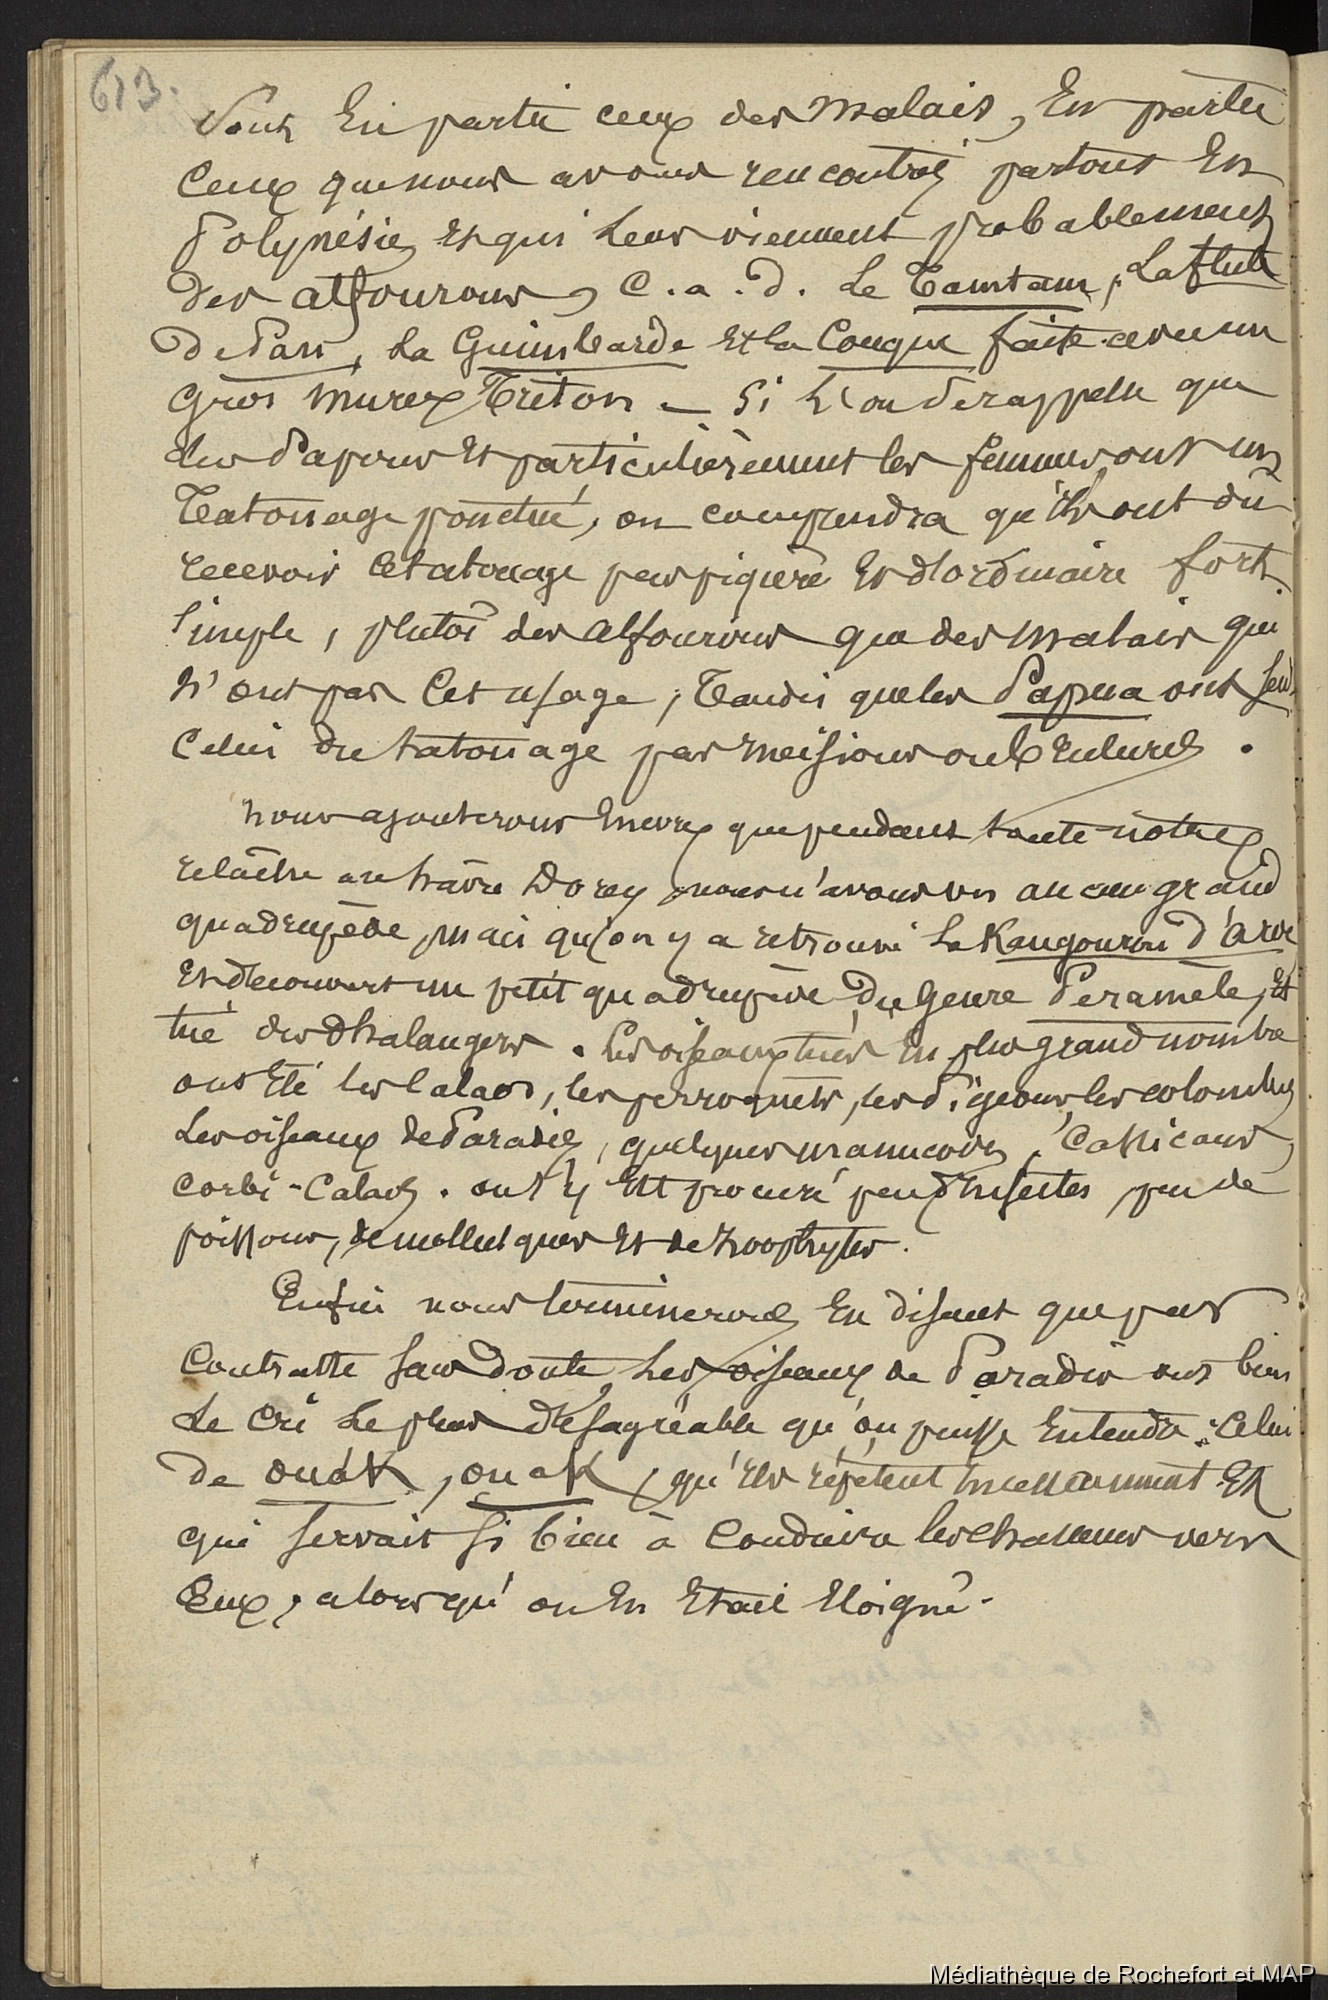 613.
sont En partie ceux des malais, En partie
Ceux que nous avons rencontrés partout En
Polynésie, Et qui leur viennent probablement
des alfourous, C.a.d. Le Tamtam, La flute
De Pan, La Guimbarde Et la Conque faite avec un
Gros murex Triton _ Si L'on se rappelle que
les Papous Et particulièrement les femmes, ont un
Tatouage ponctué, on comprendra qu'ils ont dû
recevoir ce tatouage par piqûre Et d'ordinaire fort
Simple, plutôt des alfourous que des malais qui
N'ont pas Cet usage, Tandis que les Papua ont seul
Celui du tatouage par incisions ou brulures.
Nous ajouterons Encore que pendant toute notre
relâche au havre Dorey nous n'avons vu aucun grand
quadrupède, mais qu'on y a retrouvé Le Kangourou d'arbre
Et découvert un petit quadrupède, du Genre Peramèle, Et
tué des Phalangers. Les oiseaux tués En plus grand nombre
ont Eté les Calaos, les perroquets, les Pigeons, les colombes
Les oiseaux de Paradis, quelques manucodes, Cassicans,
Corbi-Calaos. on s'y Est procuré peu d'Insectes, peu de
poissons, de mollusques Et de Zoophytes.
Enfin nous terminerons En disant que par
Contraste sans doute, Les oiseaux de Paradis ont bien
Le Cri Le plus désagréable qu'on puisse Entendre: Celui
de ouak, ouak, qu'ils répètent incessamment Et
qui servait si bien à Conduire les chasseurs vers
Eux, alors qu'on En Etait Eloigné.
Médiathèque de Rochefort et MAP